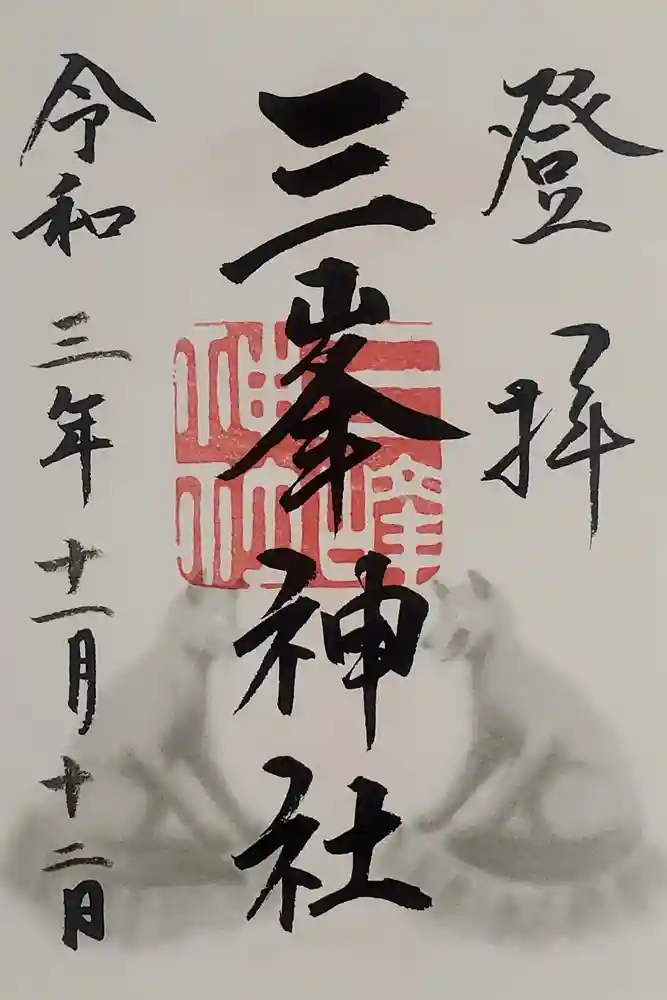 登拝
三峯神社
三峯神社
令和三年十一月十二日